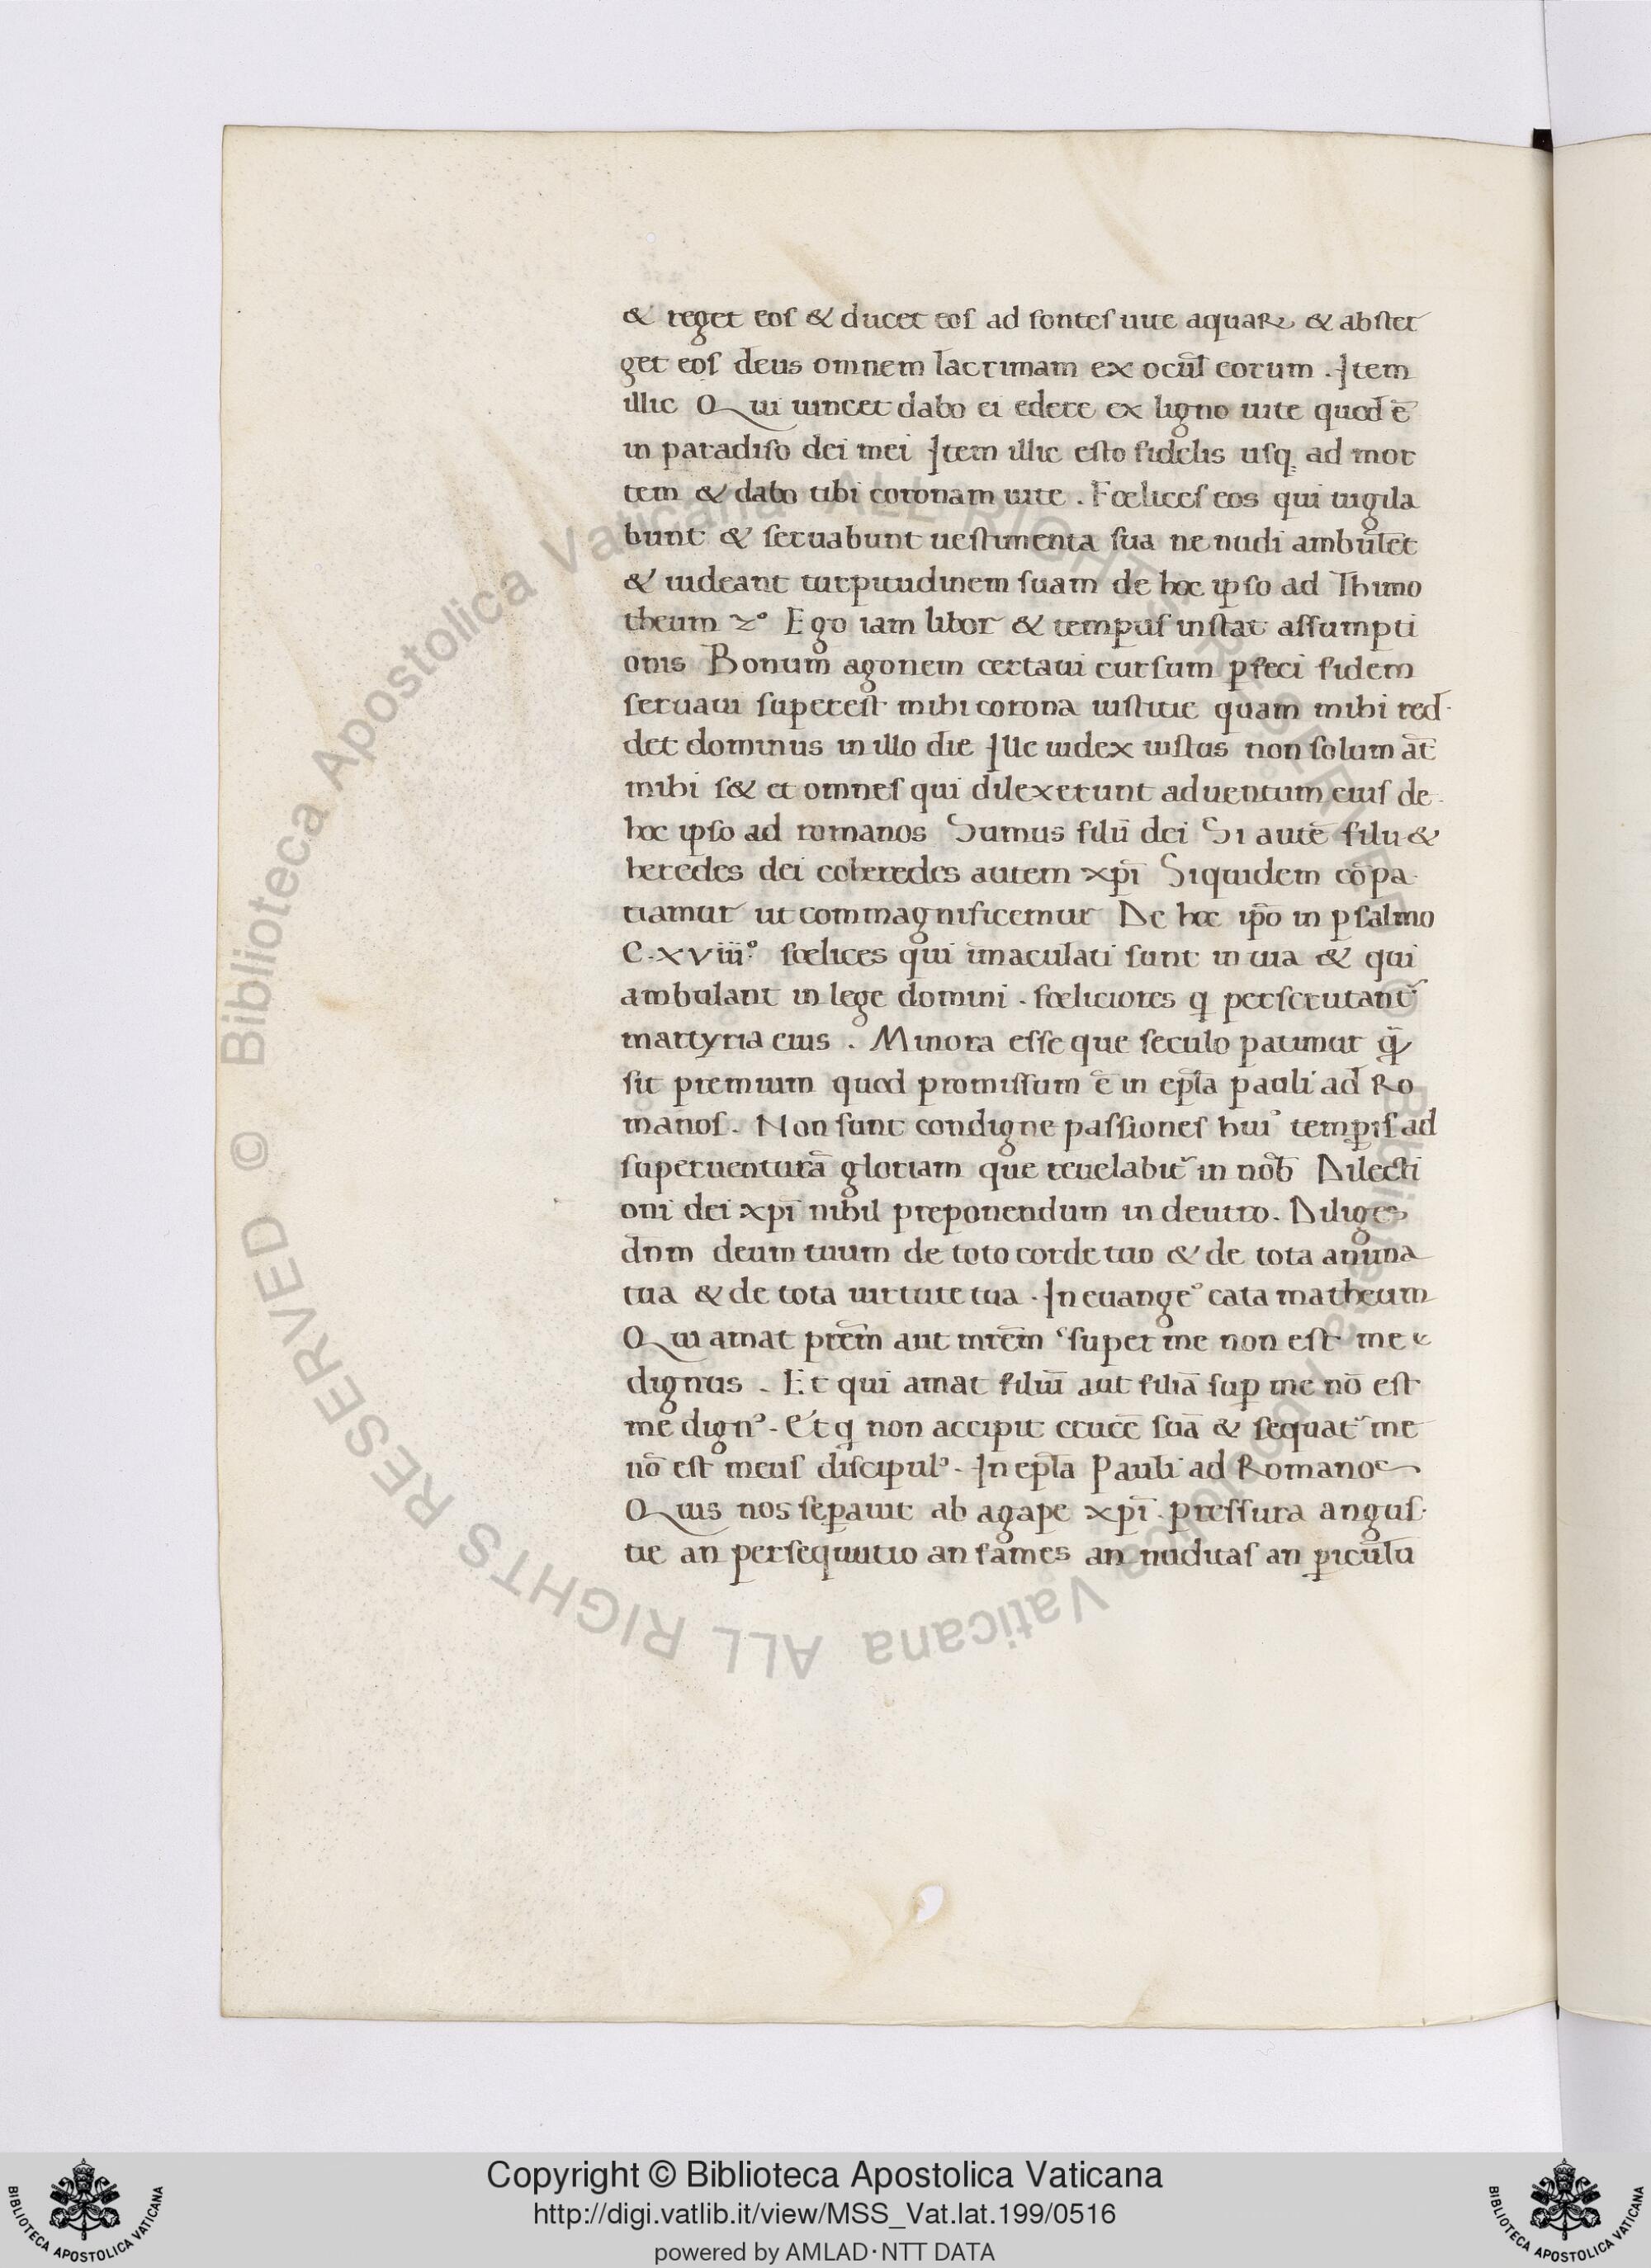 & reget eos & ducet eos ad fontes uite aquaꝝ & abster
get eos deus omnem lacrimam ex ocul̄ eorum . Item
illic Qui uincet dabo ei edere ex ligno uite quod ē
in paradiso dei mei Item illic esto fidelis usq; ad mor
tem & dabo tibi coronam uite . Foelices eos qui uigila
bunt & seruabunt uestimenta sua ne nudi ambulēt
& uideant turpitudinem suam de hoc ipso ad Thimo
theum 2º Ego iam libor & tempus instat assumpti
onis Bonum agonem certaui cursum ꝑfeci fidem
seruaui superest mihi corona iustitie quam mihi red-
det dominus in illo die Ille iudex iustus non solum āt
mihi s& et omnes qui dilexerunt aduentum eius de
hoc ipso ad romanos Sumus filii dei Si autē filii &
heredes dei coheredes autem xp̄i Siquidem cōpa
tiamur ut commagnificemur De hoc ip̄o in psalmo
C.xviiiº foelices qui īmaculati sunt in uia & qui
ambulant in lege domini . foeliciores q perscrutant᷑
martyria eius . Minora esse que seculo patimur q̄
sit premium quod promissum ē in ep̄la pauli ad Ro
manos . Non sunt condigne passiones huiꝰ temp̱is ad
superuenturā gloriam que reuelabit᷑ in nob̄ Dilecti
oni dei xp̄i nihil preponendum in deutro . Diliges
dnm deum tuum de toto corde tuo & de tota anima
tua & de tota uirtute tua . In euangeº cata matheum
Qui amat prēm aut mrēm super me non est me
dignus . Et qui amat filiū aut filiā suꝑ me nō est
me dignꝰ . Et q non accipit crucē suā & sequat᷑ me
nō est meus discipulꝰ . In ep̄la Pauli ad Romanos
Quis nos seꝑauit ab agape xp̄i pressura angus-
tie an persequutio an fames an nuditas an ꝑiculū
Copyright © Biblioteca Apostolica Vaticana
http://digi.vatlib.it/view/MSS_Vat.lat.199/0516
powered by AMLAD·NTT DATA
BIBLIOTECA APOSTOLICA VATICANA
BIBLIOTECA APOSTOLICA VATICANA
© Biblioteca Apostolica Vaticana ALL RIGHTS RESERVED © Biblioteca Apostolica Vaticana ALL RIGHTS RESERVED